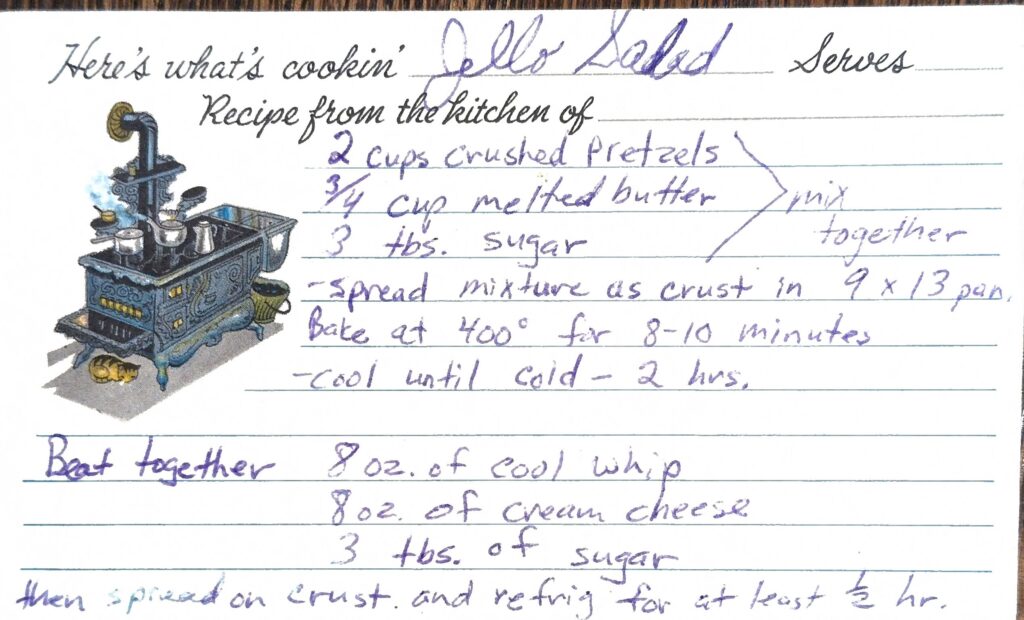 Here's what's cookin' Jello Salad Serves
Recipe from the kitchen of
2 cups crushed Pretzels
3/4 cup melted butter mix
3 tbs. sugar together
-spread mixture as crust in 9 x 13 pan.
Bake at 400° for 8-10 minutes
-cool until cold - 2 hrs.
Beat together 8 oz. of cool whip
8 oz. of cream cheese
3 tbs. of sugar
then spread on crust. and refrig for at least 1/2 hr.